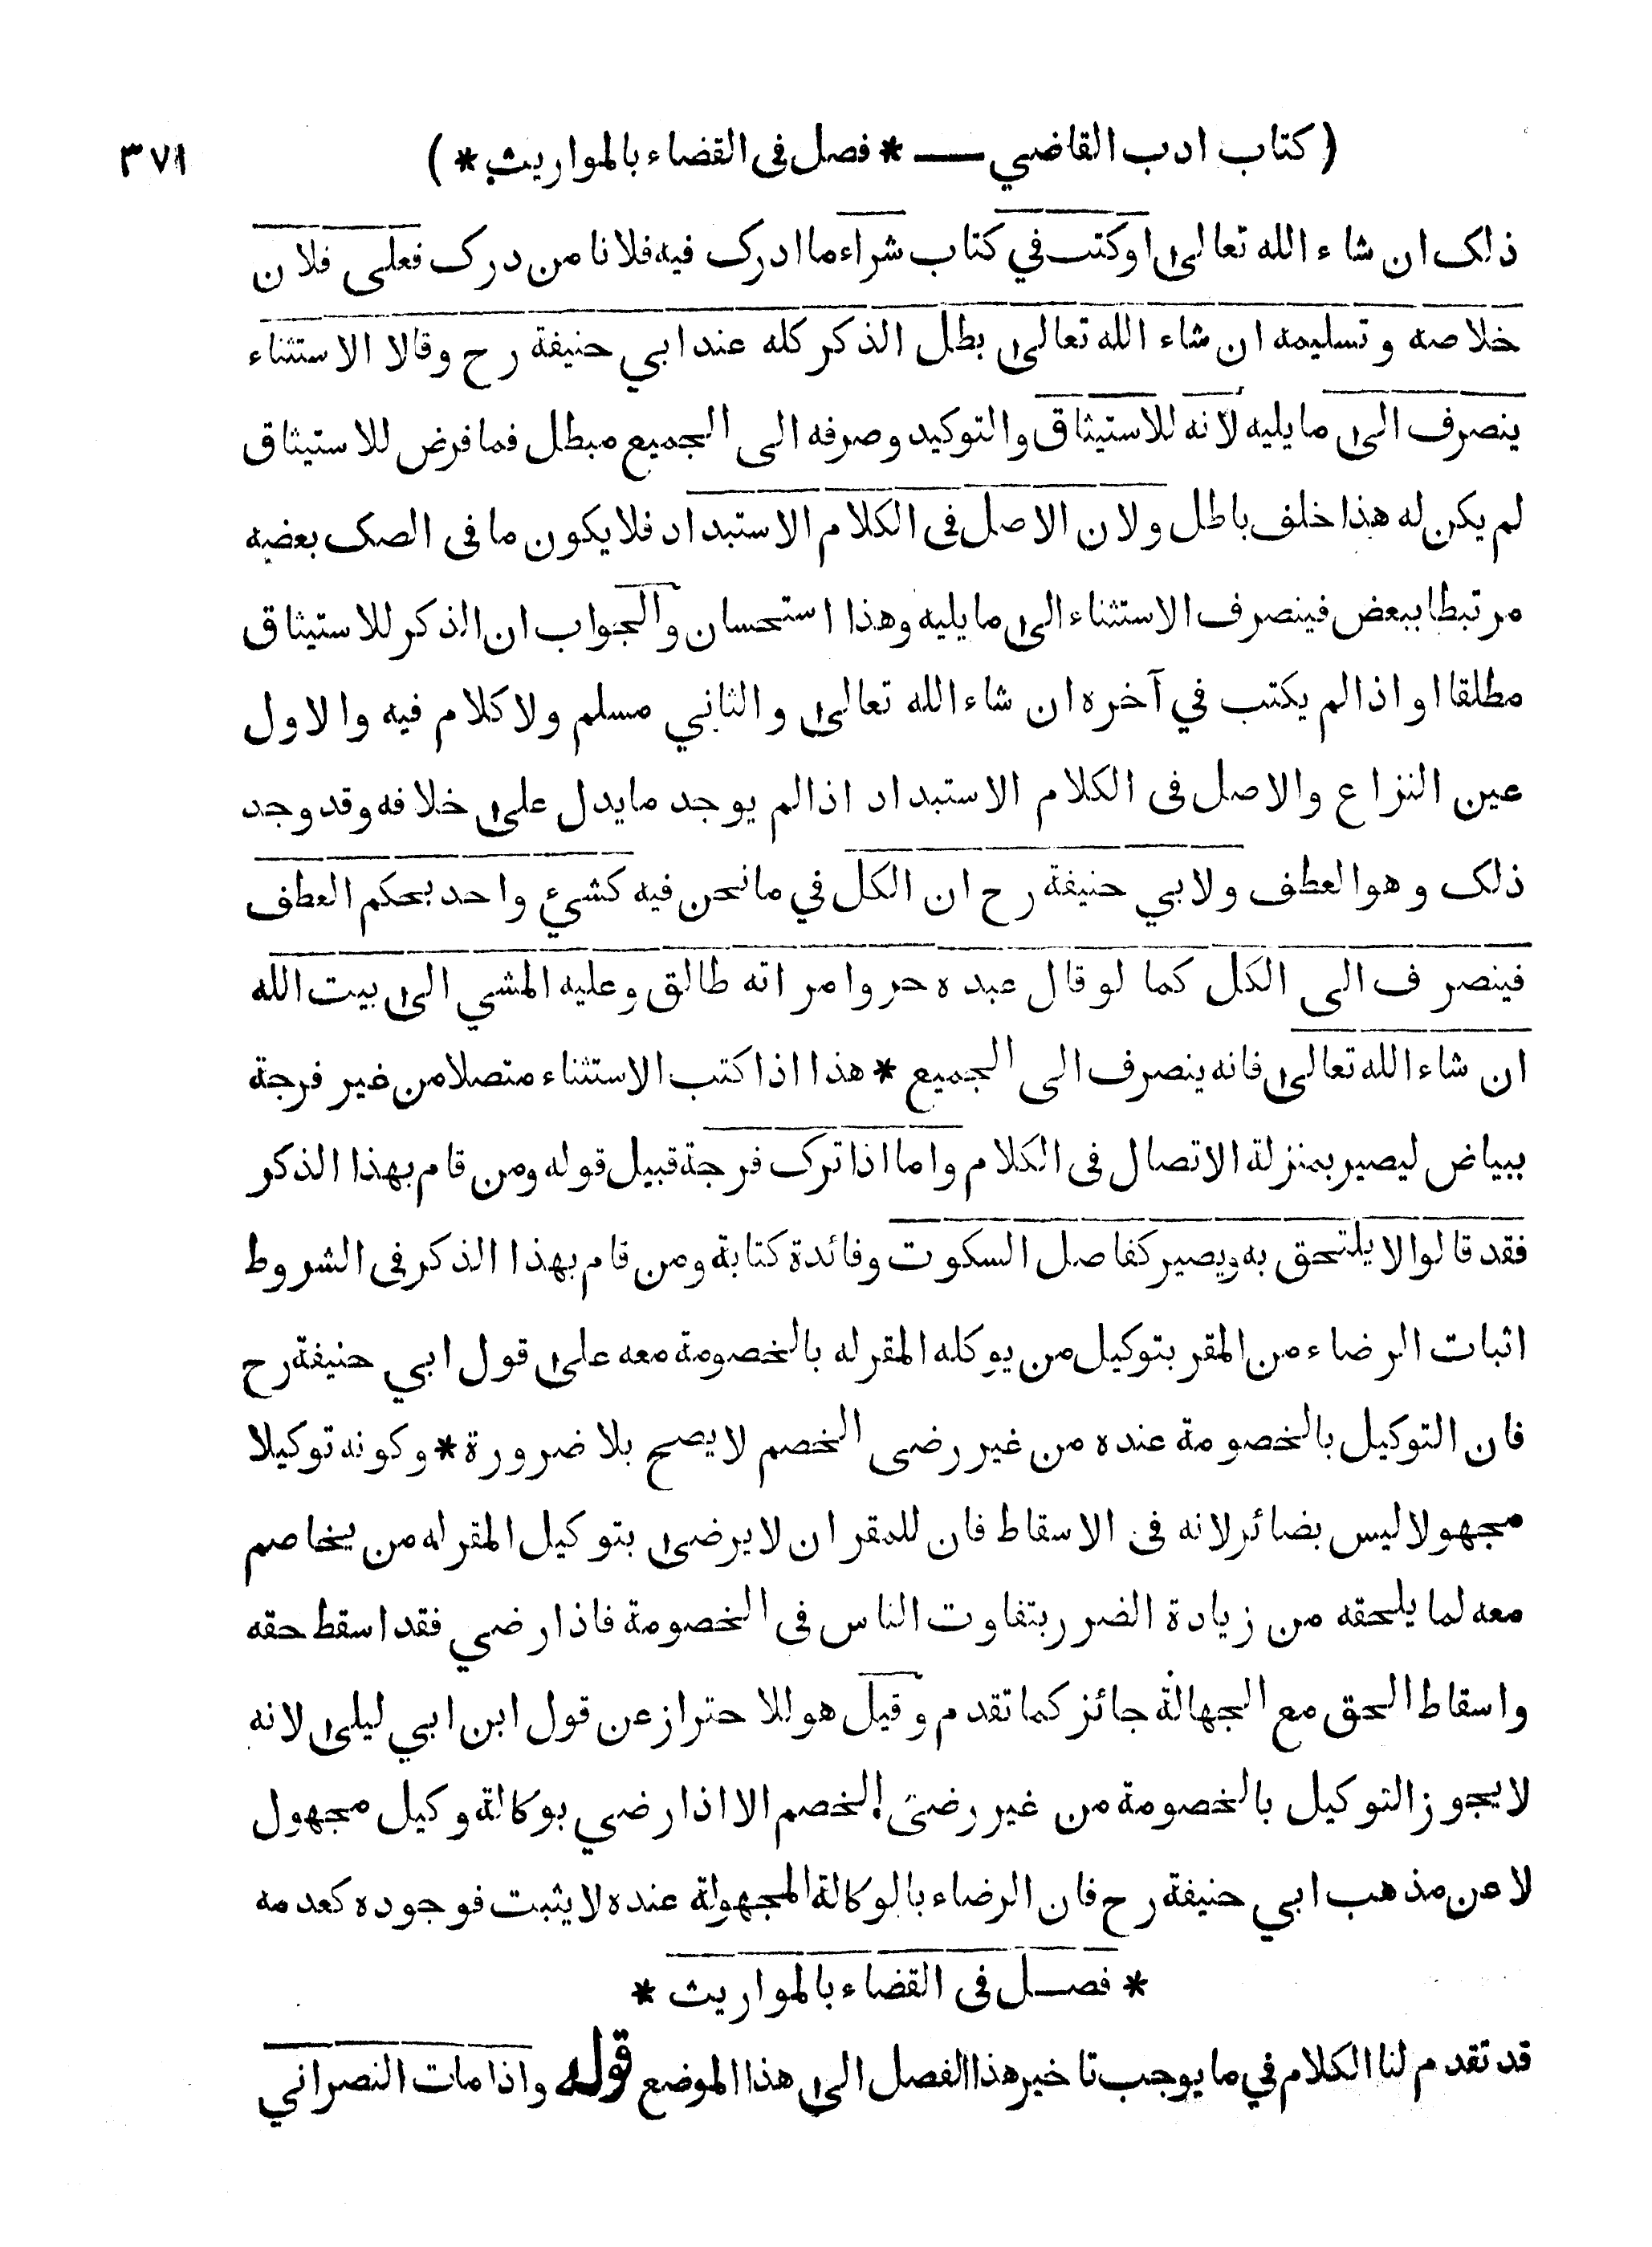 ( كتاب ادب القاضي — * فصل فى القضاء بالمواريث * ) ٣٧١
ذلك ان شاء الله تعالى اوكتب في كتاب شراء ما ادرك فيه فلانا من درك فعلى فلان
خلاصه وتسليمه ان شاء الله تعالى بطل الذكر كله عند ابي حنيفة رح وقالا الاستثناء
ينصرف الى ما يليه لانه للاستيثاق والتوكيد وصرفه الى الجميع مبطل فما فرض للاستيثاق
لم يكن له هذا خلف باطل ولان الاصل فى الكلام الاستبداد فلا يكون ما فى الصك بعضه
مرتبطا ببعض فينصرف الاستثناء الى ما يليه وهذا استحسان والجواب ان الذكر للاستيثاق
مطلقا او اذا لم يكتب في آخره ان شاء الله تعالى والثاني مسلم ولا كلام فيه والاول
عين النزاع والاصل فى الكلام الاستبداد اذا لم يوجد ما يدل على خلافه وقد وجد
ذلك وهو العطف ولابي حنيفة رح ان الكل في ما نحن فيه كشيء واحد بحكم العطف
فينصرف الى الكل كما لو قال عبده حر وامراته طالق وعليه المشي الى بيت الله
ان شاء الله تعالى فانه ينصرف الى الجميع * هذا اذا كتب الاستثناء متصلا من غير فرجة
ببياض ليصير بمنزلة الاتصال فى الكلام واما اذا ترك فرجة قبيل قوله ومن قام بهذا الذكر
فقد قالوا لا يلتحق به ويصير كفاصل السكوت وفائدة كتابة ومن قام بهذا الذكر فى الشروط
اثبات الرضاء من المقر بتوكيل من يوكله المقر له بالخصومة معه على قول ابي حنيفة رح
فان التوكيل بالخصومة عنده من غير رضى الخصم لا يصح بلا ضرورة * وكونه توكيلا
مجهولا ليس بضائر لانه فى الاسقاط فان للمقر ان لا يرضى بتوكيل المقر له من يخاصم
معه لما يلحقه من زيادة الضرر بتفاوت الناس فى الخصومة فاذا رضي فقد اسقط حقه
واسقاط الحق مع الجهالة جائز كما تقدم وقيل هو للاحتراز عن قول ابن ابي ليلى لانه
لا يجوز التوكيل بالخصومة من غير رضى الخصم الا اذا رضي بوكالة وكيل مجهول
لا عن مذهب ابي حنيفة رح فان الرضاء بالوكالة المجهولة عنده لا يثبت فوجوده كعدمه
* فصل فى القضاء بالمواريث *
قد تقدم لنا الكلام في ما يوجب تاخير هذا الفصل الى هذا الموضع قوله واذا مات النصراني